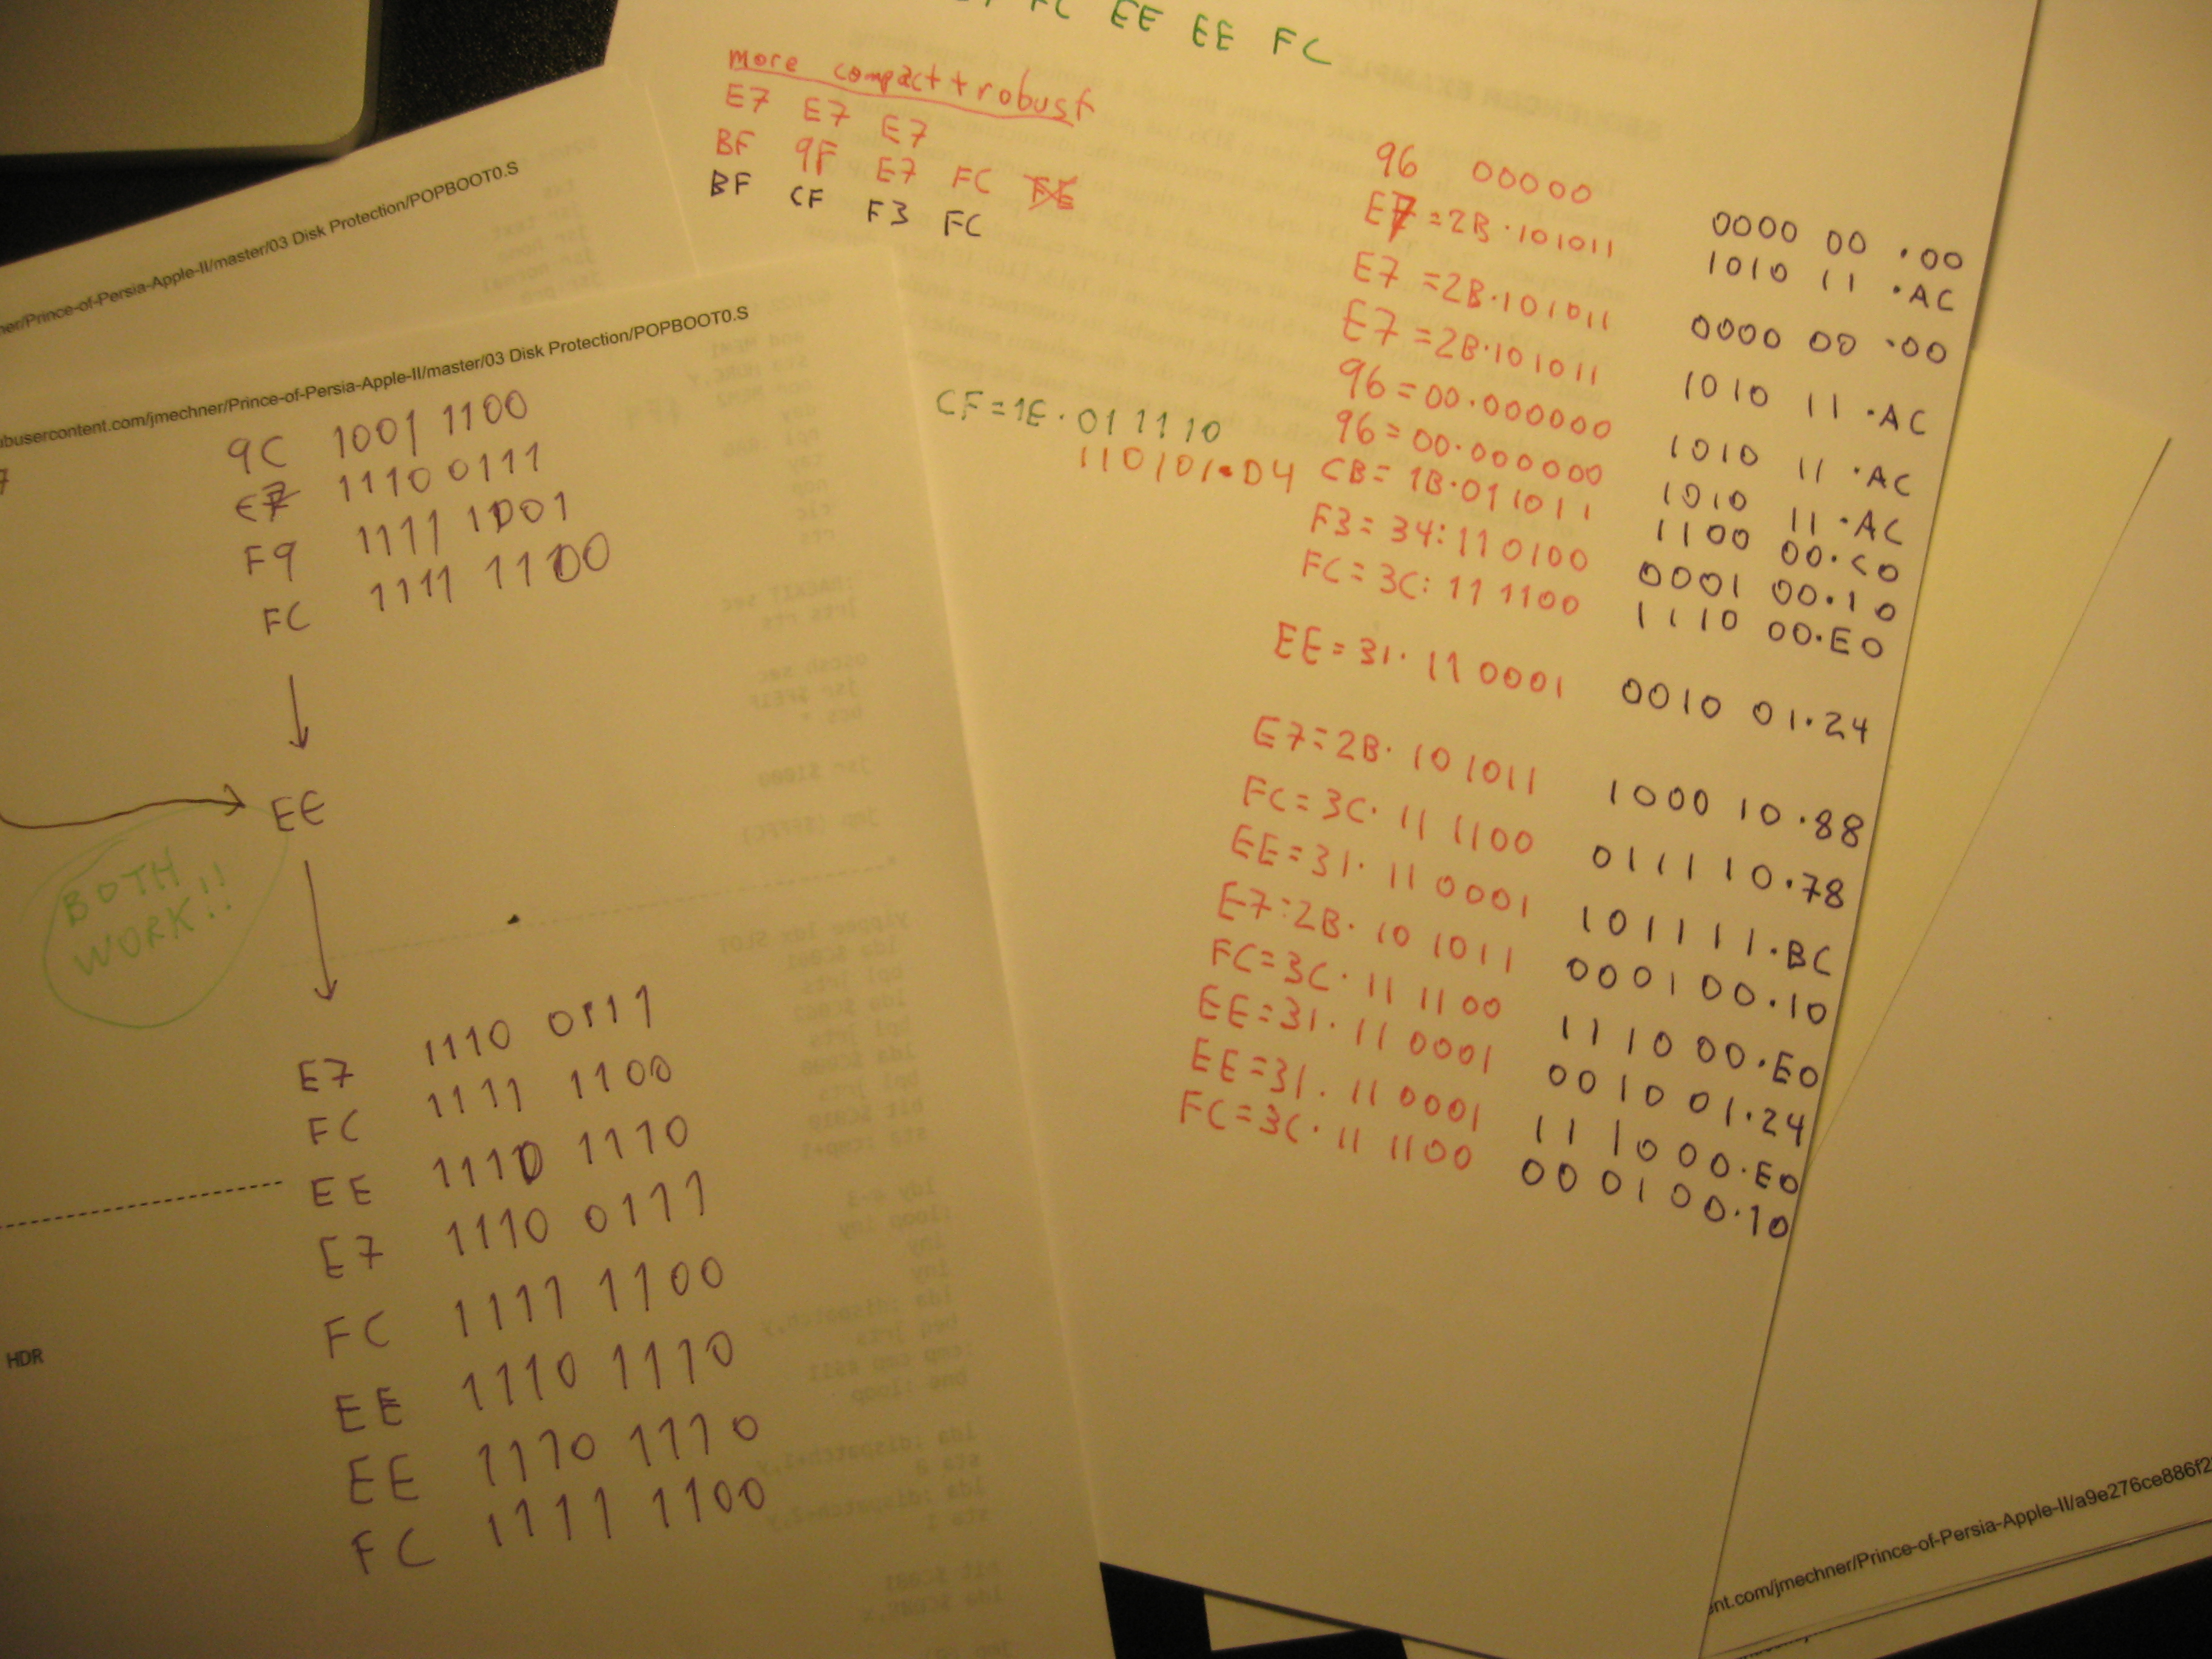 FC EE EE FC
more compact + robust
E7 E7 E7
BF 9F E7 FC FE
BF CF F3 FC
ner/Prince-of-Persia-Apple-II/master/03 Disk Protection/POPBOOT0.S
ubusercontent.com/jmechner/Prince-of-Persia-Apple-II/master/03 Disk Protection/POPBOOT0.S
7
9C 1001 1100
E7 1110 0111
F9 1111 1001
FC 1111 1100
EE
BOTH
WORK!!
E7 1110 0111
FC 1111 1100
EE 1110 1110
E7 1110 0111
FC 1111 1100
EE 1110 1110
EE 1110 1110
FC 1111 1100
HDR
CF=1E·01 1110
110101·D4
96 00000
E7=2B·101011
E7=2B·101011
E7=2B·101011
96=00·000000
96=00·000000
CB=1B·011011
F3=34:110100
FC=3C:11 1100
EE=31·11 0001
E7=2B·10 1011
FC=3C·11 1100
EE=31·11 0001
E7:2B·10 1011
FC=3C·11 1100
EE=31·11 0001
EE=31·11 0001
FC=3C·11 1100
0000 00 ·00
1010 11 ·AC
0000 00 ·00
1010 11 ·AC
1010 11 ·AC
1010 11 ·AC
1100 00·C0
0001 00·10
1110 00·E0
0010 01·24
1000 10·88
011110·78
101111·BC
000100·10
111000·E0
0010 01·24
111000·E0
000100·10
nt.com/jmechner/Prince-of-Persia-Apple-II/a9e276ce886f2